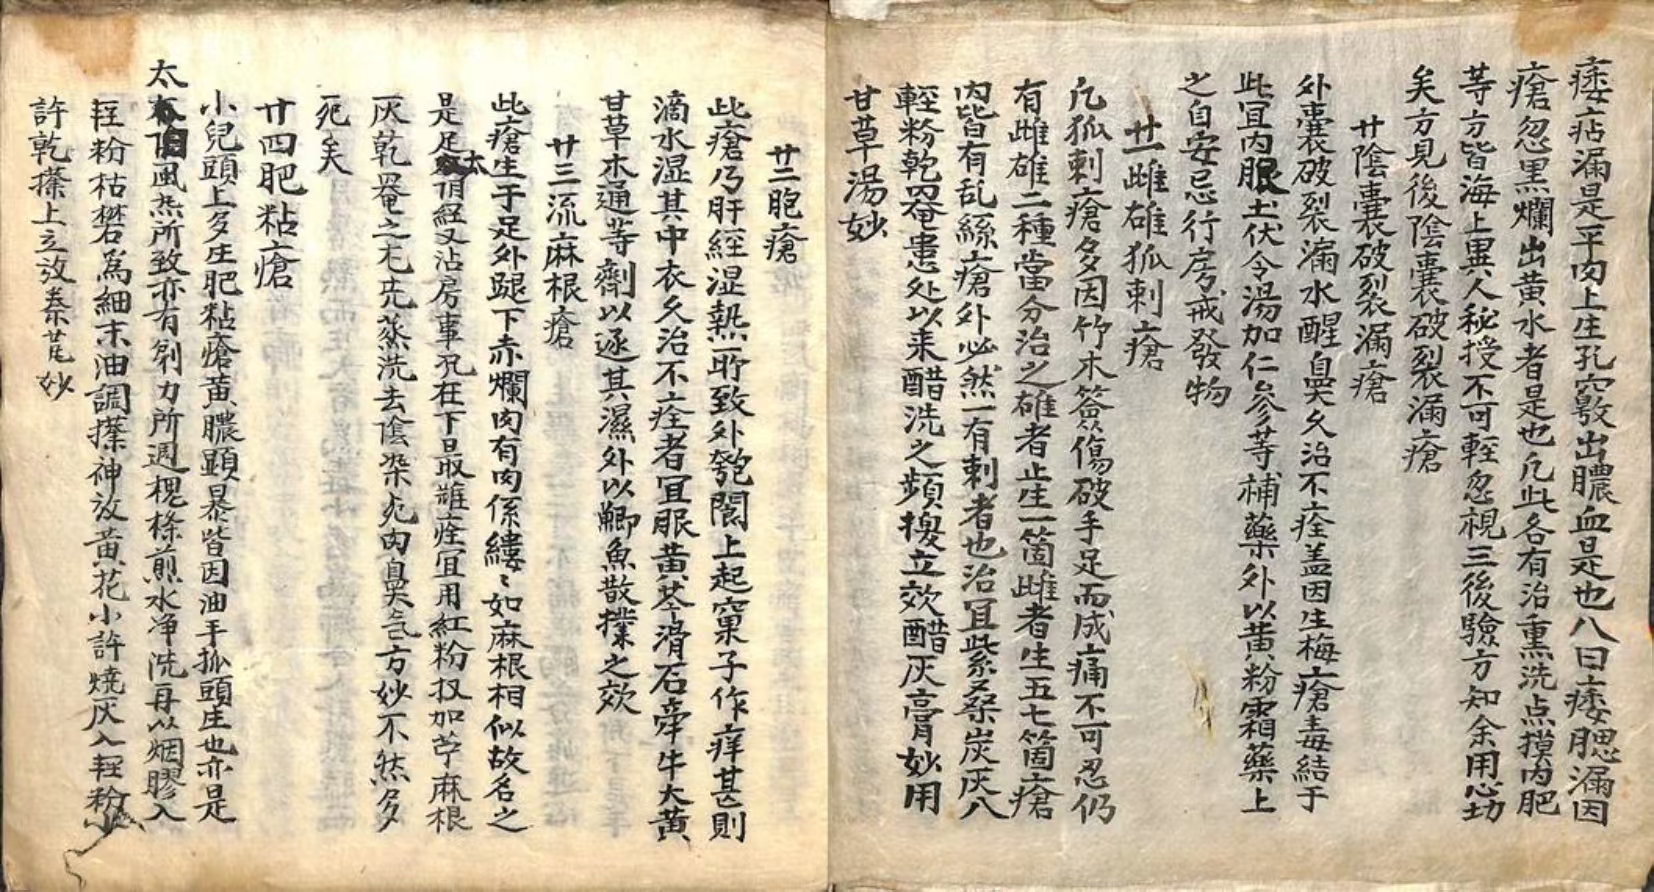 痿痁漏是平肉上生孔竅出膿血是也八曰痿腮漏因
瘡忽黑爛出黄水者是也凡此各有治熏洗点摸内肥
等方皆海上異人秘授不可輕忽視三後驗方知余用心切
矣方見後陰囊破裂漏瘡
廿陰囊破裂漏瘡
外囊破裂漏水醒臭久治不痊盖因生梅瘡毒結于
此宜内服土伏令湯加仁參等補藥外以黄粉霜藥上
之自安忌行房戒發物
廿一雌雄狐刺瘡
凡狐刺瘡多因竹木簽傷破手足而成痛不可忍仍
有雌雄二種當分治之雄者止生一箇雌者生五七箇瘡
内皆有乱絲瘡外必然一有刺者也治宜紫桑炭灰八
輕粉乾罨患处以釆醋洗之頻換立效醋灰膏妙用
甘草湯妙
廿二胞瘡
此瘡乃肝經湿熱所致外胞閣上起窠子作痒甚則
滴水湿其中衣久治不痊者宜服黄芩滑石牵牛大黄
甘草木通等劑以逐其濕外以鯽魚散摻之效
廿三流麻根瘡
此瘡生于足外腿下赤爛肉有肉係縷〻如麻根相似故名之
是足太陽經又沾房事況在下最難痊宜用紅粉杈加苧麻根
灰乾罨之尤先蒸洗去陰染死肉臭气方妙不然多
死矣
廿四肥粘瘡
小兒頭上多生肥粘瘡黄膿顯暴皆因油手抓頭生也亦是
太陽風热所致亦有剃刀所過槐條煎水净洗再以烟膠入
輕粉枯礬為細末油調搽神效黄花小許燒灰入輕粉少
許乾搽上立效秦芃妙